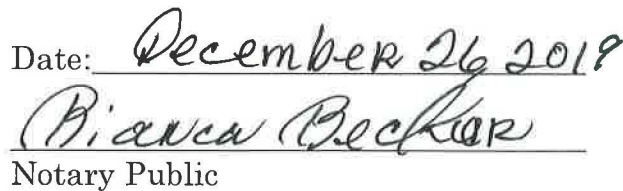 Date: December 26 2019
Bianca Becker
Notary Public